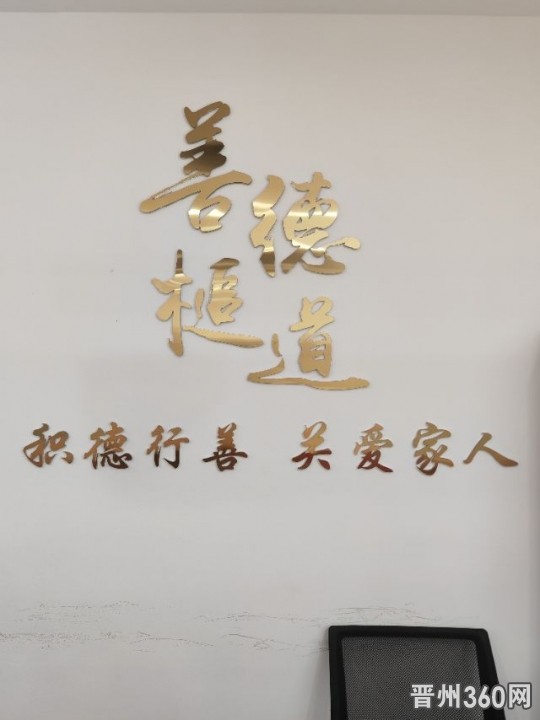 善德
槌道
积德行善 关爱家人
晋州360网